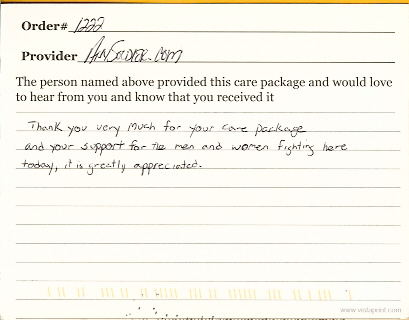 Order# 1222
Provider AnySoldier.com
The person named above provided this care package and would love
to hear from you and know that you received it
Thank you very much for your care package
and your support for the men and women fighting here
today, it is greatly appreciated.
www.vistaprint.com